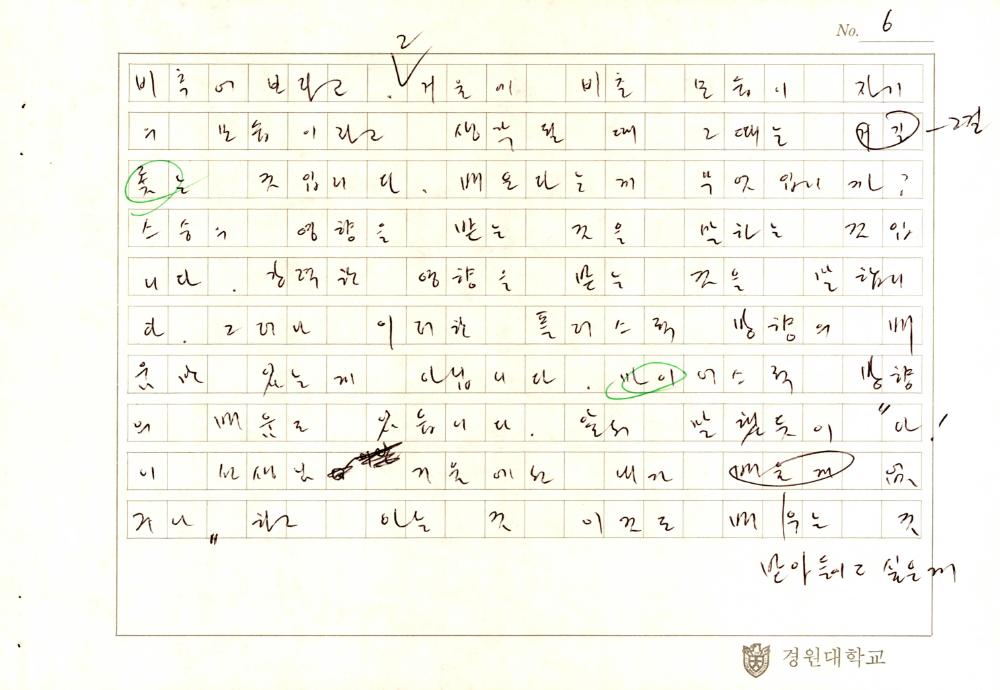 No. 6
2
비추어 보라고. 거울에 비춘 모습이 자기
의 모습이라고 생각될 때 그때는 거길 그걸
쫓는 것입니다. 배운다는게 무엇입니까?
스승의 영향을 받는 것을 말하는 것입
니다. 강력한 영향을 받는 것을 말합니
다. 그러나 이러한 플러스적 방향의 배
움만 있는게 아닙니다. 마이너스적 방향
의 배움도 있습니다. 앞서 말했듯이 "나!
이 선생님 거울에선 내가 배울께 없
거나" 하고 아는 것 이것도 배우는 것
받아들이고 싶은게
경원대학교